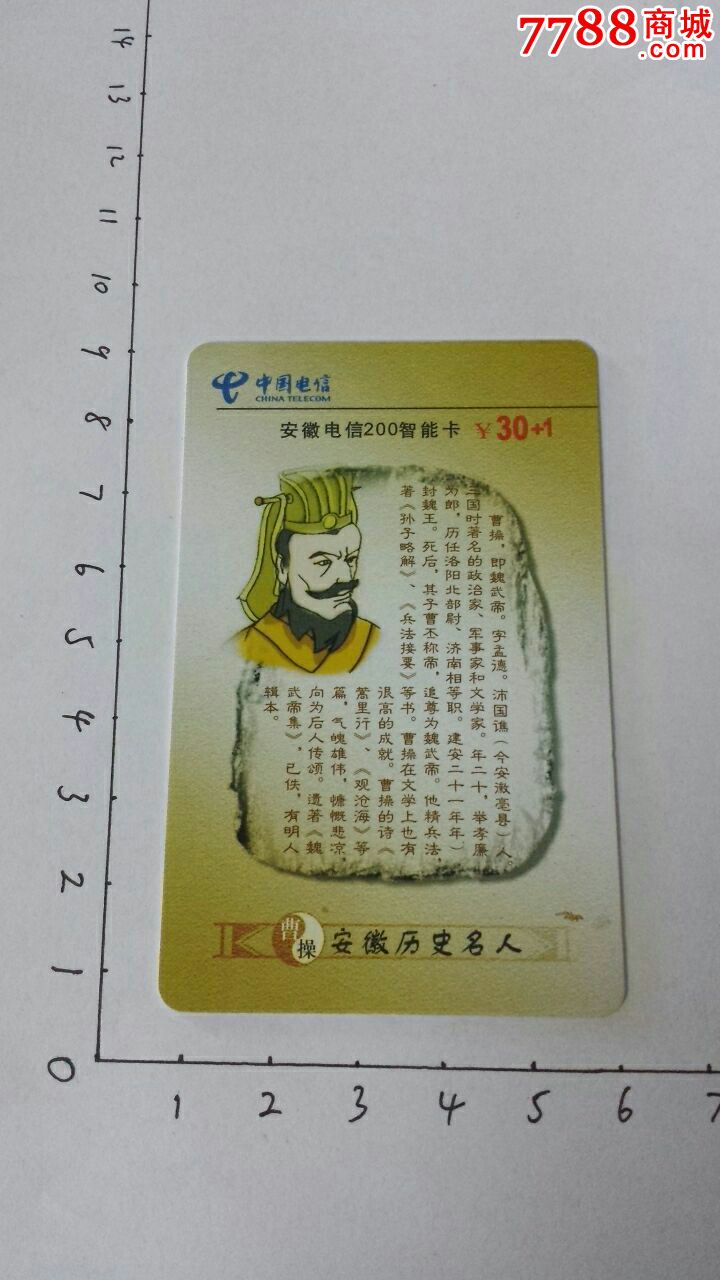 7788商城
.com
中国电信
CHINA TELECOM
安徽电信200智能卡 ￥30+1
曹操，即魏武帝。字孟德。沛国谯（今安徽亳县）人。
三国时著名的政治家、军事家和文学家。年二十，举孝廉
为郎，历任洛阳北部尉、济南相等职。建安二十一年年）
封魏王。死后，其子曹丕称帝，追尊为魏武帝。他精兵法，
著《孙子略解》、《兵法接要》等书。曹操在文学上也有
很高的成就。曹操的诗《
蒿里行》、《观沧海》等
篇，气魄雄伟，慷慨悲凉，
向为后人传颂。遗著《魏
武帝集》，已佚，有明人
辑本。
曹操 安徽历史名人
14
13
12
11
10
9
8
7
6
5
4
3
2
1
0
1 2 3 4 5 6 7